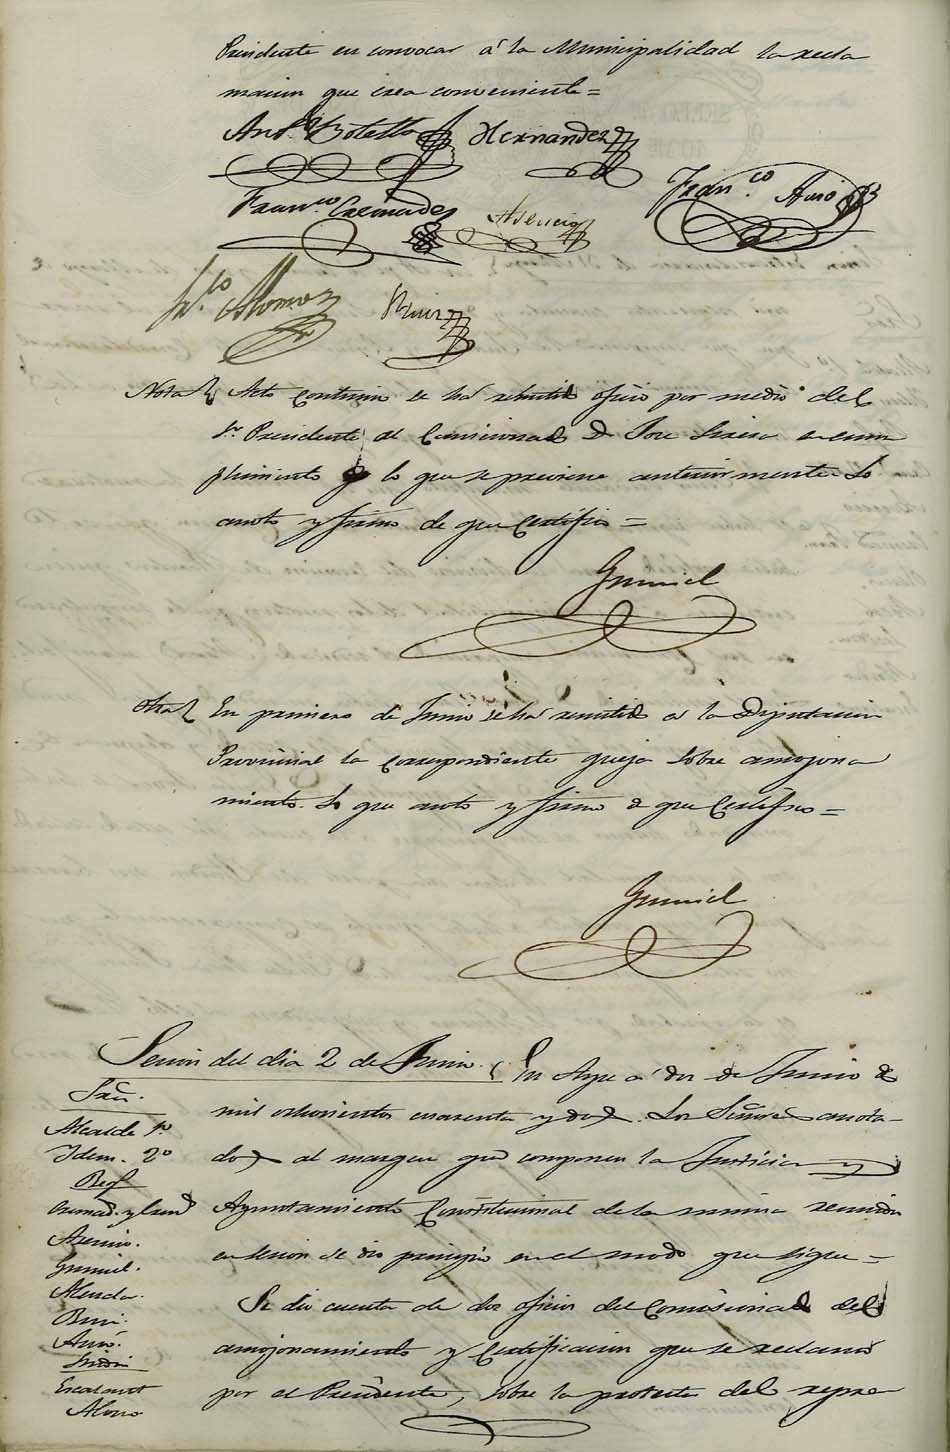 Presidente en convocar a la Municipalidad la recla
macion que crea conveniente =
Ant.º Botella Hernandez
Fran.co Aura
Franco. Cremades Asencio
Fr.co Alonso
Ruiz
Nota Acto continuo se ha remitido oficio por medio del
Sr Presidente al Comisionado D Jose en cum
plimiento a lo que se previene anteriormente Lo
anoto y firmo de que certifico =
Gumiel
Otra En primero de Junio se ha remitido a la Diputacion
Provincial la correspondiente queja sobre amojona
miento. Lo que anoto y firmo de que Certifico =
Gumiel
Sesion del dia 2 de Junio. En Aspe a dos de Junio de
mil ochocientos cuarenta y dos. Los Señores anota-
dos al margen que componen la Justicia y
Ayuntamiento Constitucional de la misma reunidos
en sesion se dio principio en el modo que sigue =
Se dio cuenta de dos oficios del Comisionado del
amojonamiento y Certificacion que se reclamó
por el Presidente, sobre la protesta del repre
Sres.
Alcalde 1º
Idem. 2º
Reg.
Cremad.
Asencio.
Gumiel.
Alenda.
Ruiz.
Aura.
Sindi
Escalant
Alonso